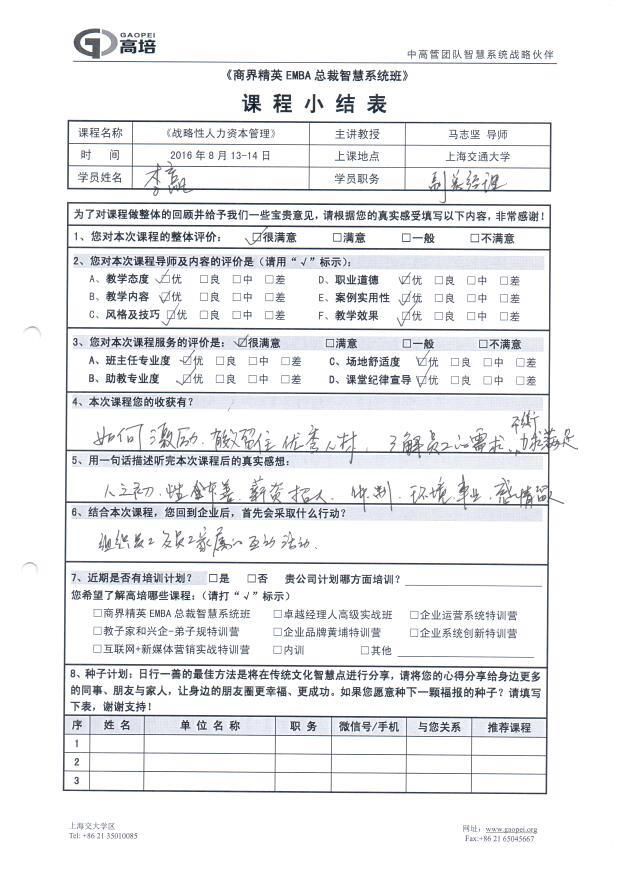 GAOPEI
高培
中高管团队智慧系统战略伙伴
《商界精英 EMBA 总裁智慧系统班》
课 程 小 结 表
课程名称 《战略性人力资本管理》 主讲教授 马志坚 导师
时 间 2016 年 8 月 13-14 日 上课地点 上海交通大学
学员姓名 学员职务 副总经理
为了对课程做整体的回顾并给予我们一些宝贵意见，请根据您的真实感受填写以下内容，非常感谢！
1、您对本次课程的整体评价： ☑很满意 □满意 □一般 □不满意
2、您对本次课程导师及内容的评价是（请用“√”标示）：
A、教学态度 ☑优 □良 □中 □差 D、职业道德 ☑优 □良 □中 □差
B、教学内容 ☑优 □良 □中 □差 E、案例实用性 ☑优 □良 □中 □差
C、风格及技巧 ☑优 □良 □中 □差 F、教学效果 ☑优 □良 □中 □差
3、您对本次课程服务的评价是： ☑很满意 □满意 □一般 □不满意
A、班主任专业度 ☑优 □良 □中 □差 C、场地舒适度 ☑优 □良 □中 □差
B、助教专业度 ☑优 □良 □中 □差 D、课堂纪律宣导 ☑优 □良 □中 □差
4、本次课程您的收获有？
如何激励、有效留住优秀人材，了解员工的需求，不断力求满足
5、用一句话描述听完本次课程后的真实感想：
人之初，性本善，薪资招人，机制、环境、事业、感情留人
6、结合本次课程，您回到企业后，首先会采取什么行动？
组织员工及员工家属的互动活动.
7、近期是否有培训计划？ □是 □否 贵公司计划哪方面培训？
您希望了解高培哪些课程：（请打“√”标示）
□商界精英 EMBA 总裁智慧系统班 □卓越经理人高级实战班 □企业运营系统特训营
□教子家和兴企-弟子规特训营 □企业品牌黄埔特训营 □企业系统创新特训营
□互联网+新媒体营销实战特训营 □内训 □其他
8、种子计划：日行一善的最佳方法是将在传统文化智慧点进行分享，请将您的心得分享给身边更多
的同事、朋友与家人，让身边的朋友圈更幸福、更成功。如果您愿意种下一颗福报的种子？请填写
下表，谢谢支持！
序 姓 名 单 位 名 称 职 务 微信号/手机 与您关系 推荐课程
1
2
3
上海交大学区
Tel: +86 21 35010085
网址：www.gaopei.org
Fax:+86 21 65045667